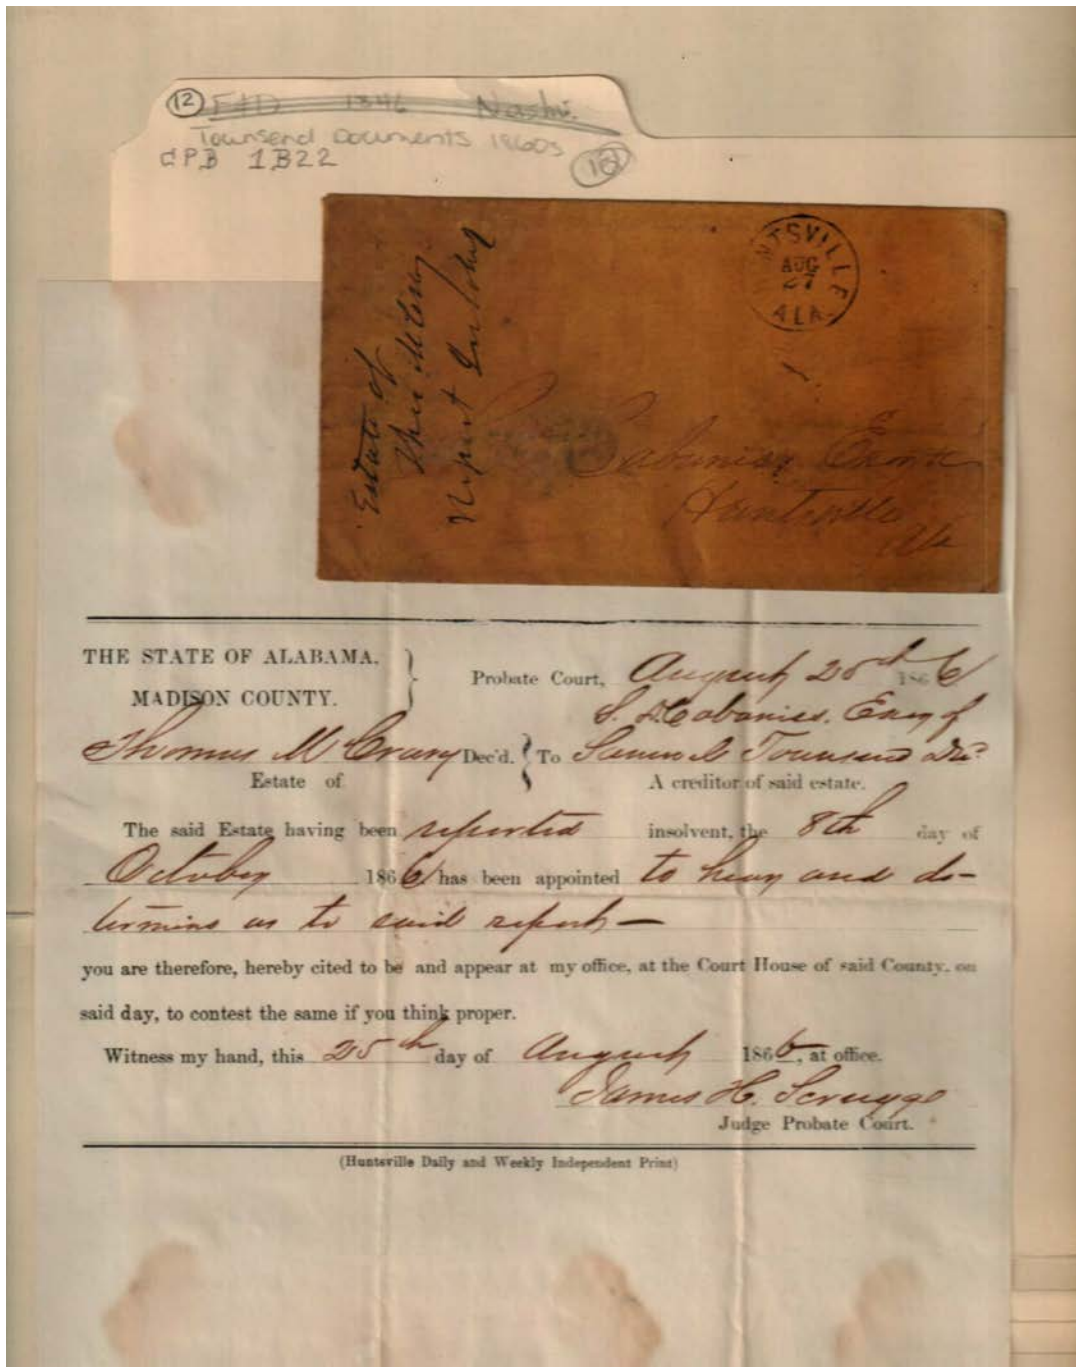 12 F+D 1846 Nash.
Townsend Documents 1860s
CPB 1B22
12
Estate of
Thos McCrary
Report Insolvcy
HUNTSVILLE
AUG
27
ALA.
Cabaniss
Huntsville
Ala
THE STATE OF ALABAMA,
MADISON COUNTY.
Probate Court, August 25th 1866
S. D. Cabaniss. Exor of
Thomas McCrary Dec'd. To Samuel Townsend Dec'd
Estate of A creditor of said estate.
The said Estate having been reported insolvent, the 8th day of
October 1866 has been appointed to hear and de-
termine as to said report—
you are therefore, hereby cited to be and appear at my office, at the Court House of said County, on
said day, to contest the same if you think proper.
Witness my hand, this 25th day of August 1866, at office.
James H. Scruggs
Judge Probate Court.
(Huntsville Daily and Weekly Independent Print)